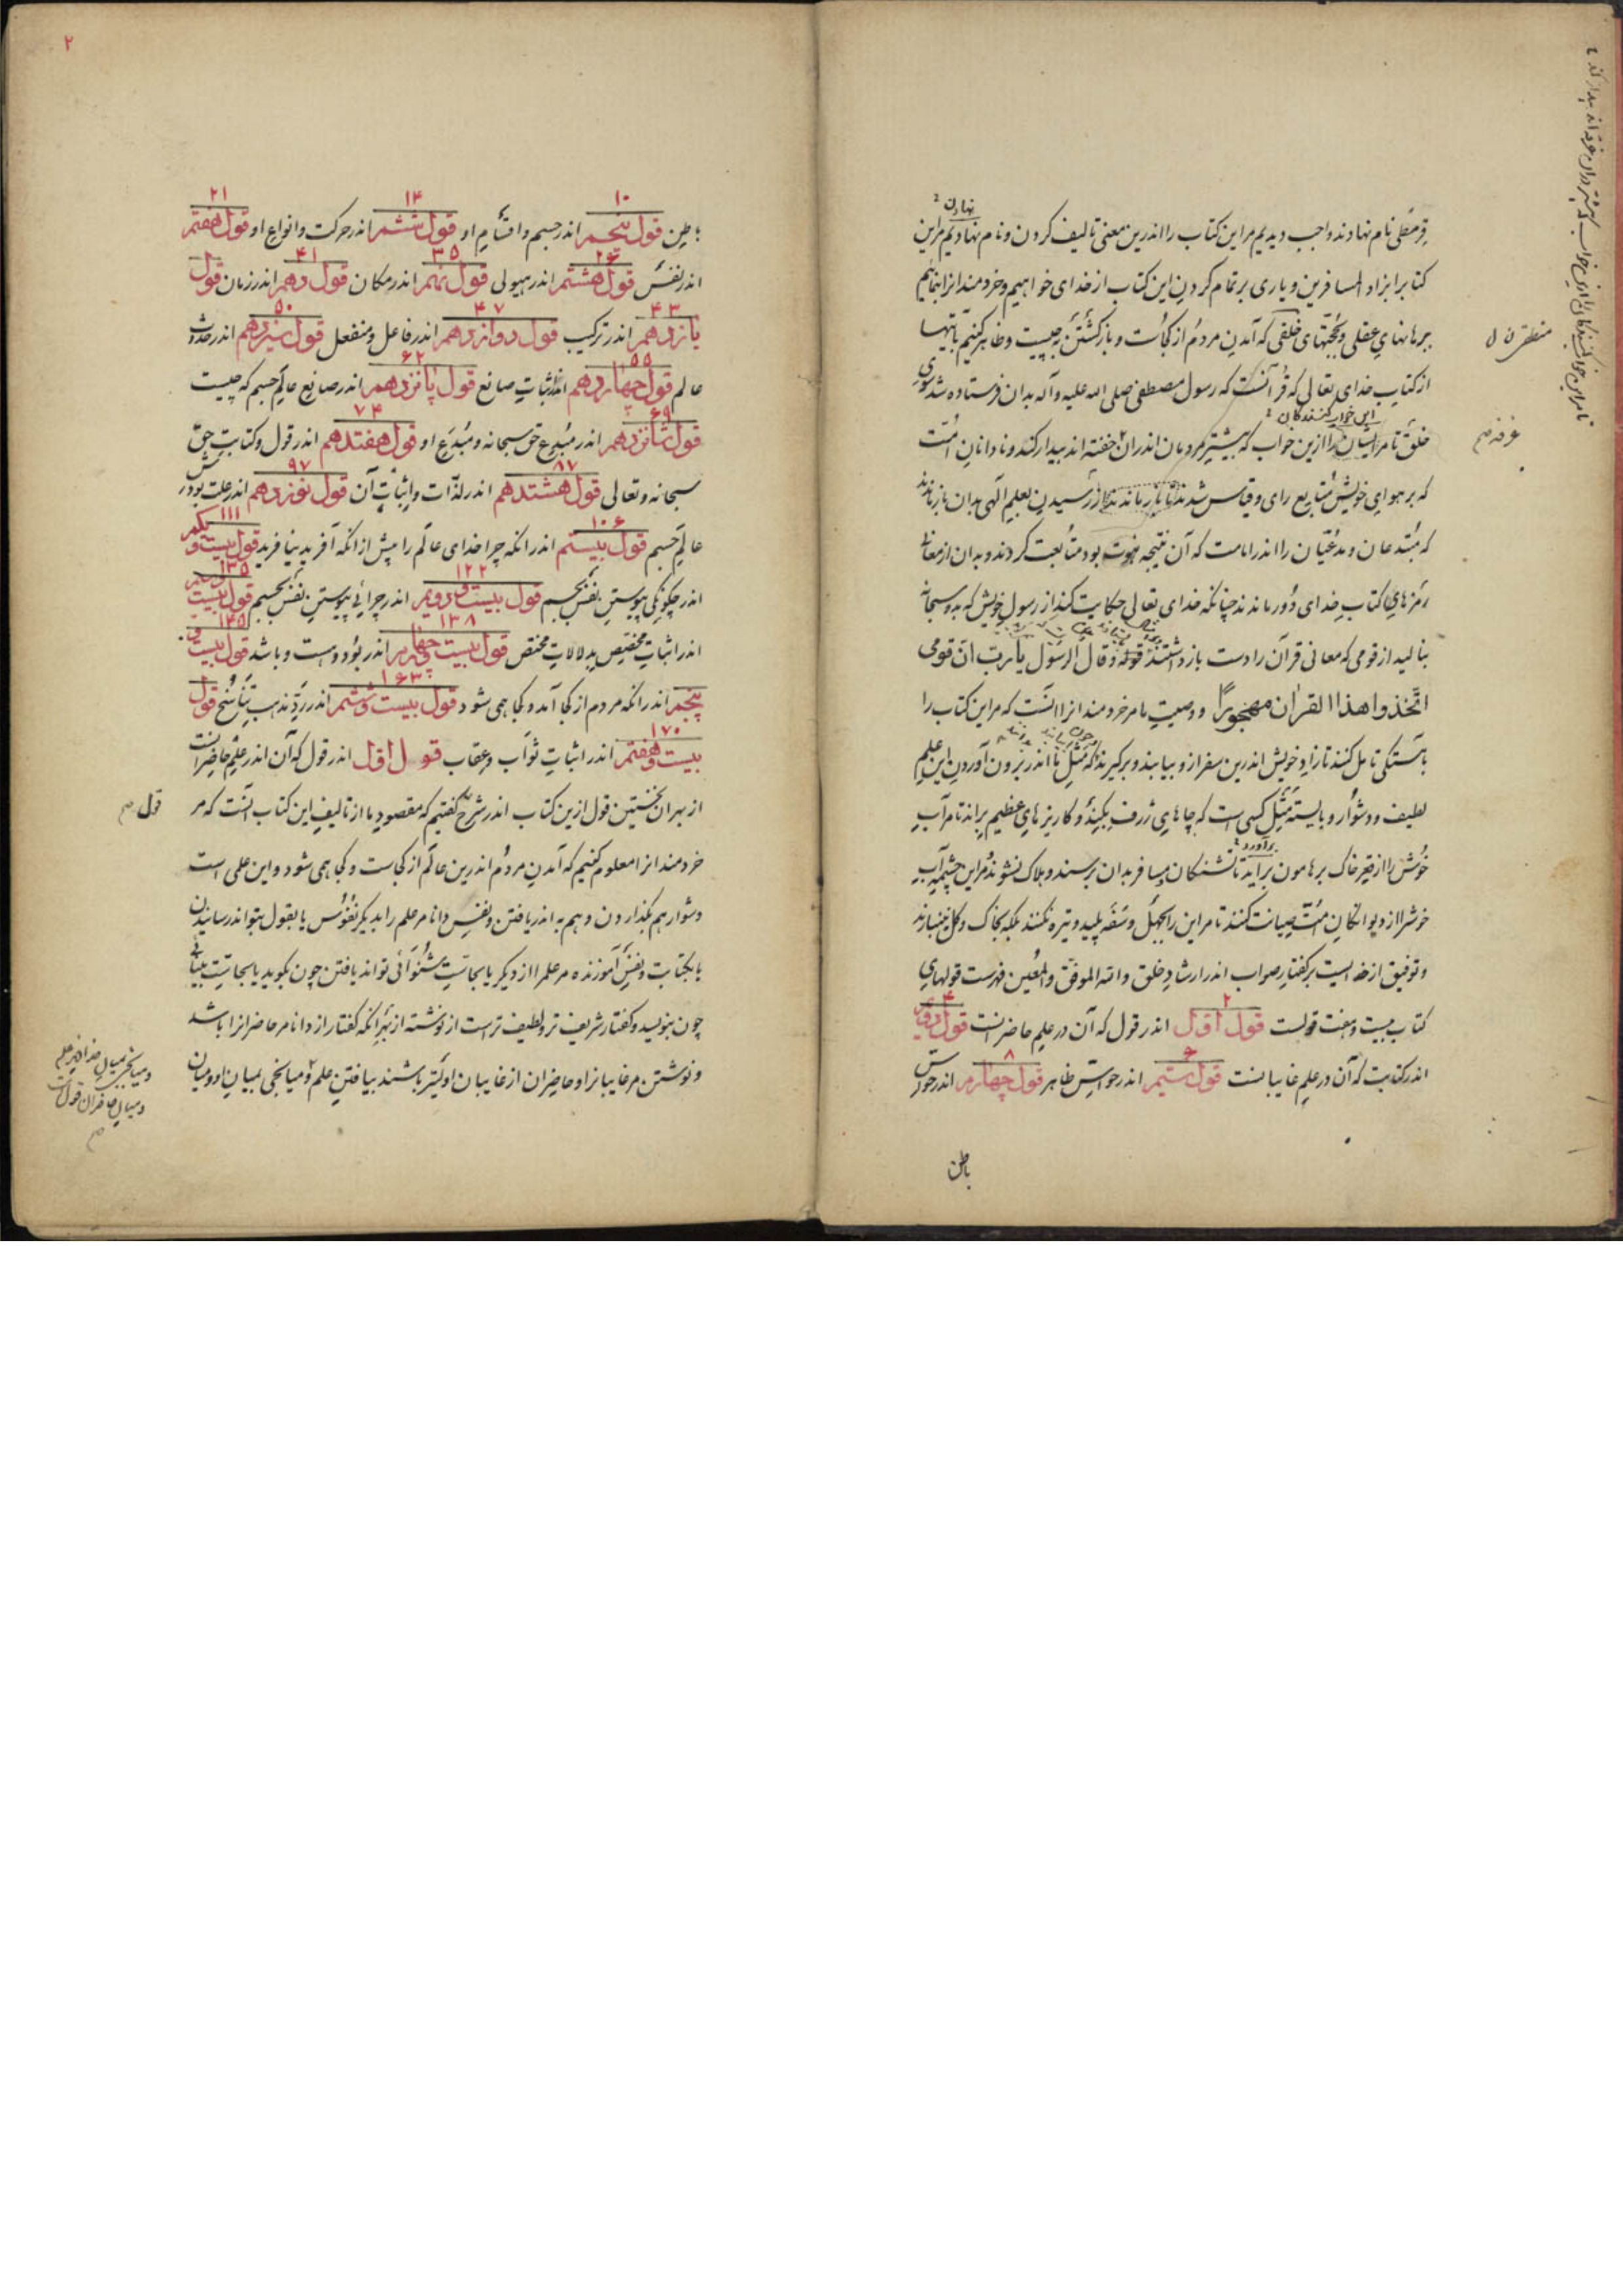 قرمطی نام نهادند واجب دیدیم مر این کتاب را اندرین معنی تالیف کردن و نام نهادیم مر این
نهادن
کتابرا بزاد المسافرین و یاری بر تمام کردن این کتاب از خدای خواهیم و خردمندانرا بنمائیم
ببرهانهای عقلی و بحجتهای خلقی که آمدن مردم از کجاست و بازگشتن بچیست و ظاهر کنیم بآیتها
از کتاب خدای تعالی که قرآنست که رسول مصطفی صلی الله علیه وآله بدان فرستاده شد سوی
این خوار کنندگان
خلق تا مر ایشان را ازین خواب که بیشتر مردمان اندران خفته اند بیدار کند و نادانان امت
که بر هوای خویش متابع رای و قیاس شدند تا باز ماندند از رسیدن بعلم الهی بدان باز ماندند
که مبتدعان و مدعیان را اندر امامت که آن نتیجه نبوت بود متابعت کردند و بدان از معانی
رمزهای کتاب خدای دور ماندند چنانکه خدای تعالی حکایت کند از رسول خویش که بدو سبحانه
بنالید از قومی که معانی قرآن را دست باز داشتند قوله وقال الرسول یا رب ان قومی
اتخذوا هذا القران مهجورا و وصیت ما مر خردمندانرا آنست که مر این کتاب را
بآهستگی تامل کنند تا زاد خویش اندرین سفر ازو بیابند و برگیرند که مثل ما اندر برون آوردن این علم
لطیف و دشوار و بایسته مثل کسی است که چاهای ژرف بکند و کاریزهای عظیم براند تا مر آب
برآورد
خوش را از قعر خاک بر هامون برآید تا تشنگان مسافر بدان برسند و هلاک نشوند مر این چشمه آب
خوش را از دیوانگان امت صیانت کنند تا مر این را بجهل و سفه پلید و تیره نکنند بلکه بخاک و گل نینبارند
و توفیق از خدایست بر گفتار صواب اندر ارشاد خلق والله الموفق والمعین فهرست قولهای
کتاب بیست و هفت قولست قول اول ۲ اندر قول که آن در علم حاضرانست قول دوم ۴
اندر کتابت که آن در علم غایبانست قول سیم ۶ اندر حواس ظاهر قول چهارم ۸ اندر حواس
باطن
۲
باطن قول پنجم ۱۰ اندر جسم و اقسام او قول ششم ۱۴ اندر حرکت و انواع او قول هفتم ۲۱
اندر نفس قول هشتم ۲۶ اندر هیولی قول نهم ۳۵ اندر مکان قول دهم ۴۱ اندر زمان قول
یازدهم ۴۳ اندر ترکیب قول دوازدهم ۴۷ اندر فاعل و منفعل قول سیزدهم ۵۰ اندر حدوث
عالم قول چهاردهم ۵۵ اندر اثبات صانع قول پانزدهم ۶۲ اندر صانع عالم جسم که چیست
قول شانزدهم ۶۹ اندر مبدع حق سبحانه و مبدَع او قول هفتدهم ۷۴ اندر قول و کتابت حق
سبحانه و تعالی قول هشتدهم ۸۷ اندر لذات و اثبات آن قول نوزدهم ۹۷ اندر علت بودش
عالم جسم قول بیستم ۱۰۶ اندر آنکه چرا خدای عالم را پیش از آنکه آفرید نیافرید قول بیست و یکم ۱۱۱
اندر چگونگی پیوستن نفس بجسم قول بیست و دویم ۱۲۲ اندر چرائی پیوستن نفس بجسم قول بیست و سیم ۱۳۵
اندر اثبات مخصص بدلالات مختص قول بیست و چهارم ۱۳۸ اندر بود و هست و باشد قول بیست و ۱۴۵
پنجم اندر آنکه مردم از کجا آمد و کجا همی شود قول بیست و ششم ۱۶۳ اندر رد مذهب تناسخ قول
بیست و هفتم ۱۷۰ اندر اثبات ثواب و عقاب قول اول اندر قول که آن اندر علم حاضرانست
از بهر آن نخستین قول ازین کتاب اندر شرح گفتیم که مقصود ما از تالیف این کتاب آنست که مر
قول
خردمندانرا معلوم کنیم که آمدن مردم اندرین عالم از کجاست و کجا همی شود و این علمی است
دشوار هم بگذاردن و هم به اندر یافتن و نفس دانا مر علم را بدیگر نفوس یا بقول تواند رسانیدن
یا بکتابت و نفس آموزنده مر علم را از دیگر یا بحاست شنوائی تواند یافتن چون بگوید یا بحاست بینائی
چون بنویسد و گفتار شریف تر و لطیف تر است از نوشته از بهر آنکه گفتار از دانا مر حاضرانرا باشد
و نوشتن مر غایبانرا و حاضران از غایبان اولیتر باشند بیافتن علم و میانجی بمیان او و میان